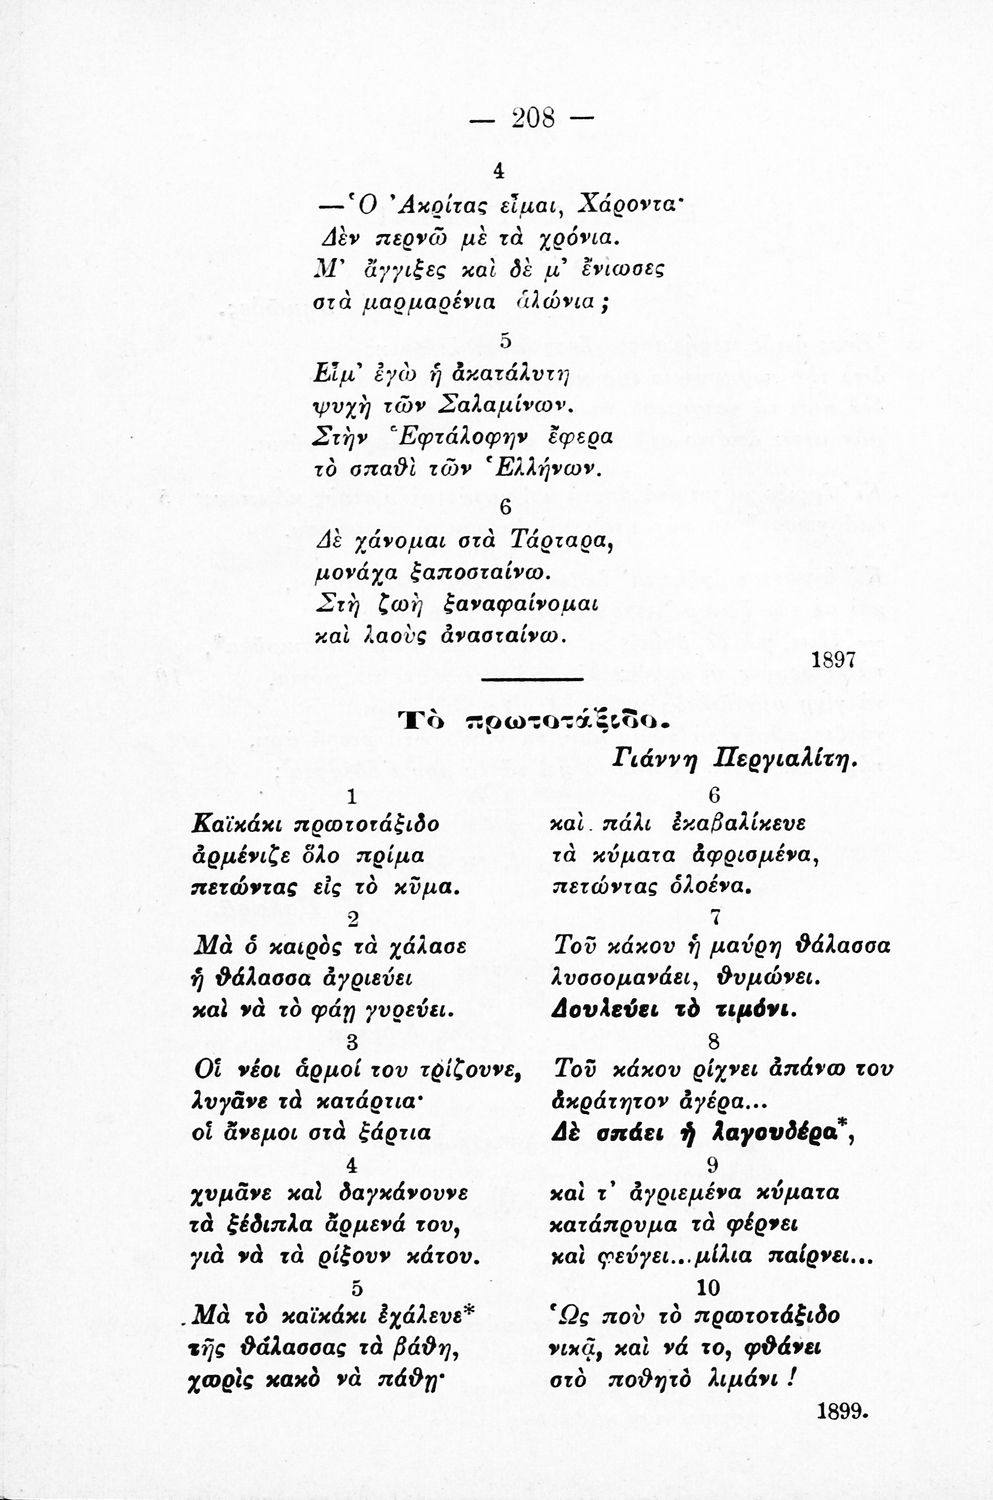 — 208 —
4
—Ὁ Ἀκρίτας εἶμαι, Χάροντα·
Δὲν περνῶ μὲ τὰ χρόνια.
Μ' ἄγγιξες καὶ δὲ μ' ἔνιωσες
στὰ μαρμαρένια ἁλώνια ;
5
Εἶμ' ἐγὼ ἡ ἀκατάλυτη
ψυχὴ τῶν Σαλαμίνων.
Στὴν Ἑφτάλοφην ἔφερα
τὸ σπαθὶ τῶν Ἑλλήνων.
6
Δὲ χάνομαι στὰ Τάρταρα,
μονάχα ξαποσταίνω.
Στὴ ζωὴ ξαναφαίνομαι
καὶ λαοὺς ἀνασταίνω.
1897
Τὸ πρωτοτάξιδο.
Γιάννη Περγιαλίτη.
1
Καϊκάκι πρωτοτάξιδο
ἀρμένιζε ὅλο πρίμα
πετώντας εἰς τὸ κῦμα.
2
Μὰ ὁ καιρὸς τὰ χάλασε
ἡ θάλασσα ἀγριεύει
καὶ νὰ τὸ φάῃ γυρεύει.
3
Οἱ νέοι ἁρμοί του τρίζουνε,
λυγᾶνε τὰ κατάρτια·
οἱ ἄνεμοι στὰ ξάρτια
4
χυμᾶνε καὶ δαγκάνουνε
τὰ ξέδιπλα ἄρμενά του,
γιὰ νὰ τὰ ρίξουν κάτου.
5
Μὰ τὸ καϊκάκι ἐχάλευε*
τῆς θάλασσας τὰ βάθη,
χωρὶς κακὸ νὰ πάθῃ·
6
καὶ πάλι ἐκαβαλίκευε
τὰ κύματα ἀφρισμένα,
πετώντας ὁλοένα.
7
Τοῦ κάκου ἡ μαύρη θάλασσα
λυσσομανάει, θυμώνει.
Δουλεύει τὸ τιμόνι.
8
Τοῦ κάκου ρίχνει ἀπάνω του
ἀκράτητον ἀγέρα...
Δὲ σπάει ἡ λαγουδέρα*,
9
καὶ τ' ἀγριεμένα κύματα
κατάπρυμα τὰ φέρνει
καὶ φεύγει...μίλια παίρνει...
10
Ὡς ποὺ τὸ πρωτοτάξιδο
νικᾷ, καὶ νά το, φθάνει
στὸ ποθητὸ λιμάνι !
1899.